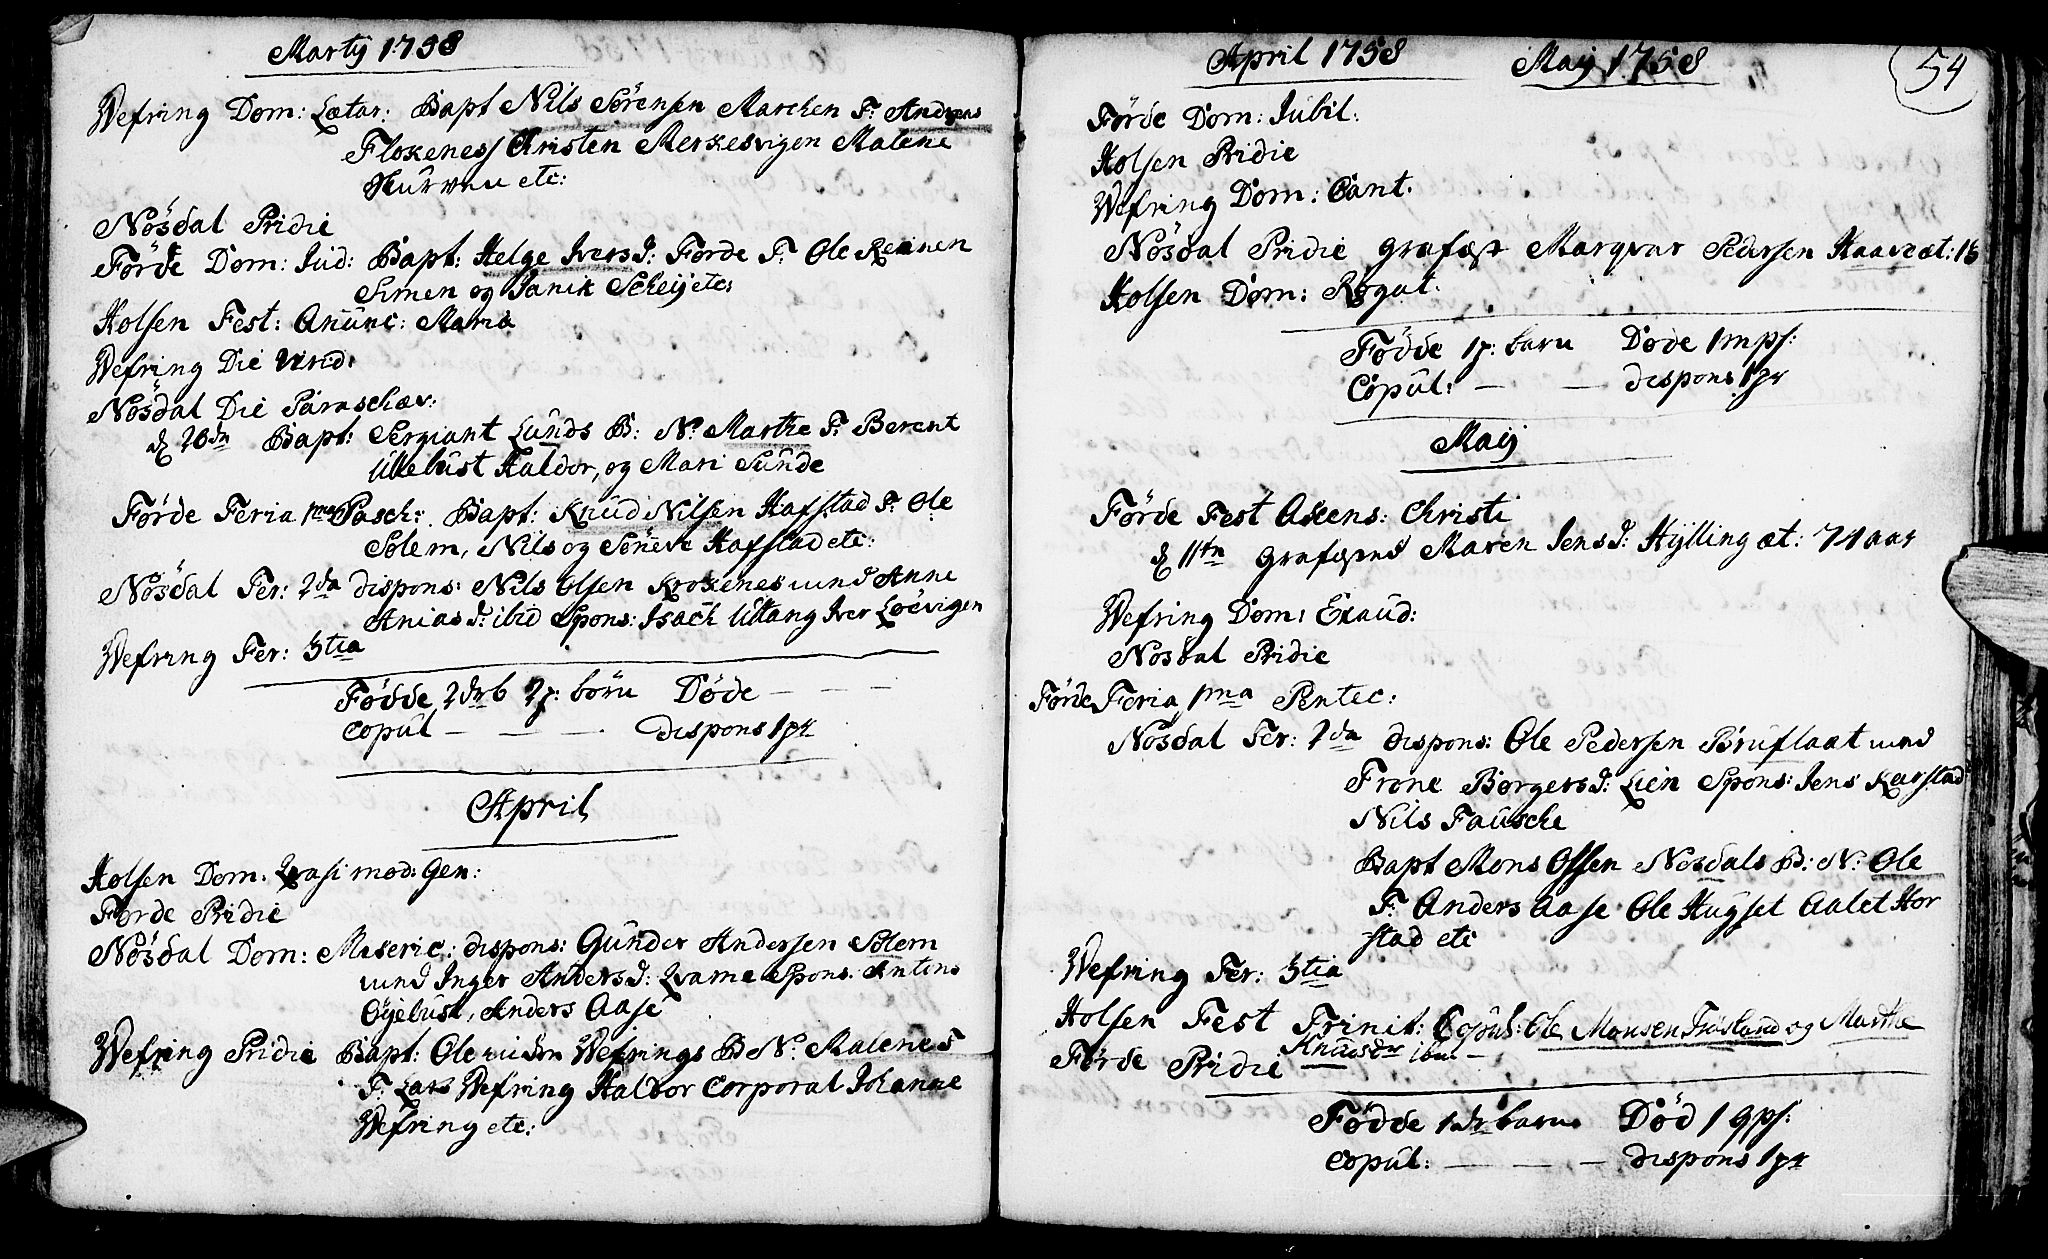 Martij 1758
Wefring Dom: Lætar: Bapt Nils Sörensen Marchen F: Andreas
Flokenes Christen Merkesvigen Malene
etc:
Nösdal Pridie
Förde Dom: Jud: Bapt: Helge Ivers D: Förde F: Ole Reinen
Simen og Janik Scheij etc:
Holsen Fest: Anunc: Maria
Wefring Die Virid:
Nösdal Die Paraschæv:
d 26dn Bapt: Sergiant Lunds B: N: Marthe F: Berent
Ullebust Haldor, og Mari Sunde
Förde Feria 1ma Pasch: Bapt: Knud Nilsen Hafstad F: Ole
Solem, Nils og Söneve Hafstad etc:
Nösdal Fer: 2da dispons: Nils Olsen Krokenes und Anne
Anias D: ibid Spons: Isach Utlang Iver Löevigen
Wefring Fer: 3tia
Födde 2drb 2p: börn Döde – – –
Copul – – – dispons 1pr
April
Holsen Dom: Qvasimod: Gen:
Förde Pridie
Nösdal Dom: Miseric: dispons: Gunder Andersen Solem
und Inger Anders D: Qvame Spons: Antens
Öijebust, Anders Aase
Wefring Pridie Bapt: Ole Wefrings B N: Malene
F: Lars Wefring Haldor Corporal Johanne
Wefring etc:
April 1758 Maij 1758 54
Förde Dom: Jubil:
Holsen Pridie
Wefring Dom: Cant.
Nösdal Pridie grafæst Marqvar Pedersen Haave æt: 16
Holsen Dom: Rogat.
Födde 1p: barn Döde 1mps:
Copul: – – dispons 1pr
Maij
Förde Fest Ascens: Christi
d 11tn Maren Jens D: Hylling æt: 74 aar
Wefring Dom: Exaud:
Nösdal Pridie
Förde Feria 1ma Pentec:
Nösdal Fer: 2da dispons: Ole Pedersen Bruflaat und
Trone Börgers D: Lien Spons: Jens Karstad
Nils Fausche
Bapt Mons Olsen Nösdals B: N: Ole
F: Anders Aase Ole Hugset Aalet Hor
stad etc
Wefring Fer: 3tia
Holsen Fest Trinit: Copul: Ole Monsen Fröslaud og Marthe
Knudsdr ibm –
Förde Pridie
Födde 1dr barn Död 1 qps:
Copul: – – – dispons 1pr